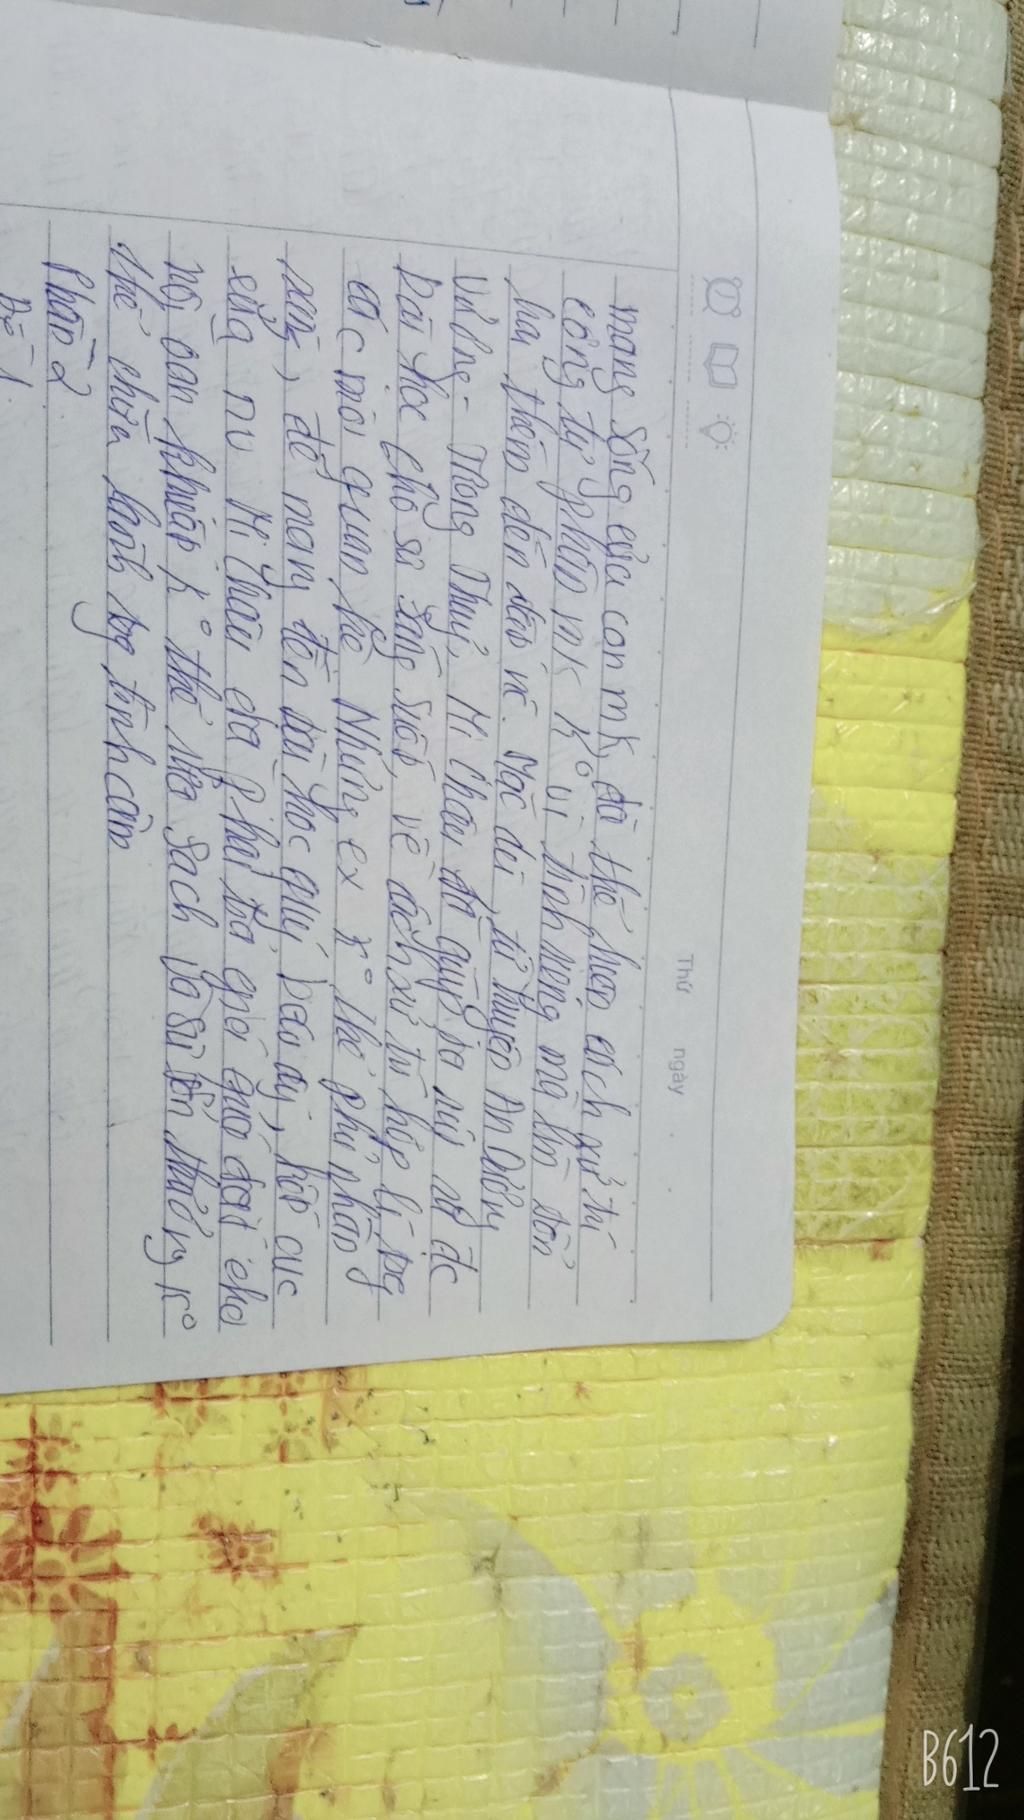 Thứ ngày
mạng sống của con mk, đã thể hiện cách xử tú
công tư phân mk k° vì tình riêng mà làm tổn
hại thêm đến dân nc. Mặc dù, từ truyện An Dương
Vương - Trọng Thuỷ, Mị Châu đã giúp ta rút ra đc
bài học cho sự sáng suốt, về cách xử tú hợp lí, trg
các mối quan hệ. Những ex k° thể phủ nhận
rằng, để mang đến bài học quý báu ấy, kết cục
của nv Mị Châu đã phải trả giá quá đắt cho
nỗi oan khuất k° thể rửa sạch và sự tổn thương k°
thể chữa lành trg tình cảm
Phần 2
Đề 1
B612